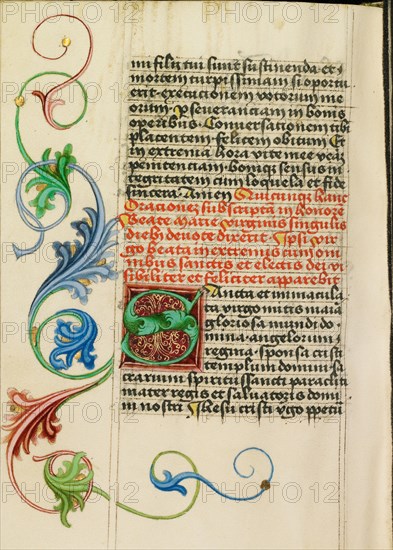 mi filij tui sunt sustinenda et
mortem turpissimam si oportu
erit executionem votorum me
orum perseveranciam in bonis
operibus Conversationem tibi
placentem felicem obitum Et
in extrema hora vite mee veram
penitenciam bonique sensus in
tegritatem cum loquela et fide
sincera Amen Quicunque hanc
Orationem subscriptam in honore
Beate Marie virginis singulis
diebus devote dixerit Ipsi vir
go beata in extremis cum om
nibus sanctis et electis dei vi
sibiliter et feliciter apparebit
Sancta et immacula
ta virgo mitis maria
gloriosa mundi do
mina angelorum
regina sponsa cristi
templum domini sa
crarium spiritus sancti paracliti
mater regis et salvatoris domi
ni nostri Jhesu cristi virgo perpetu
PHOTO 12